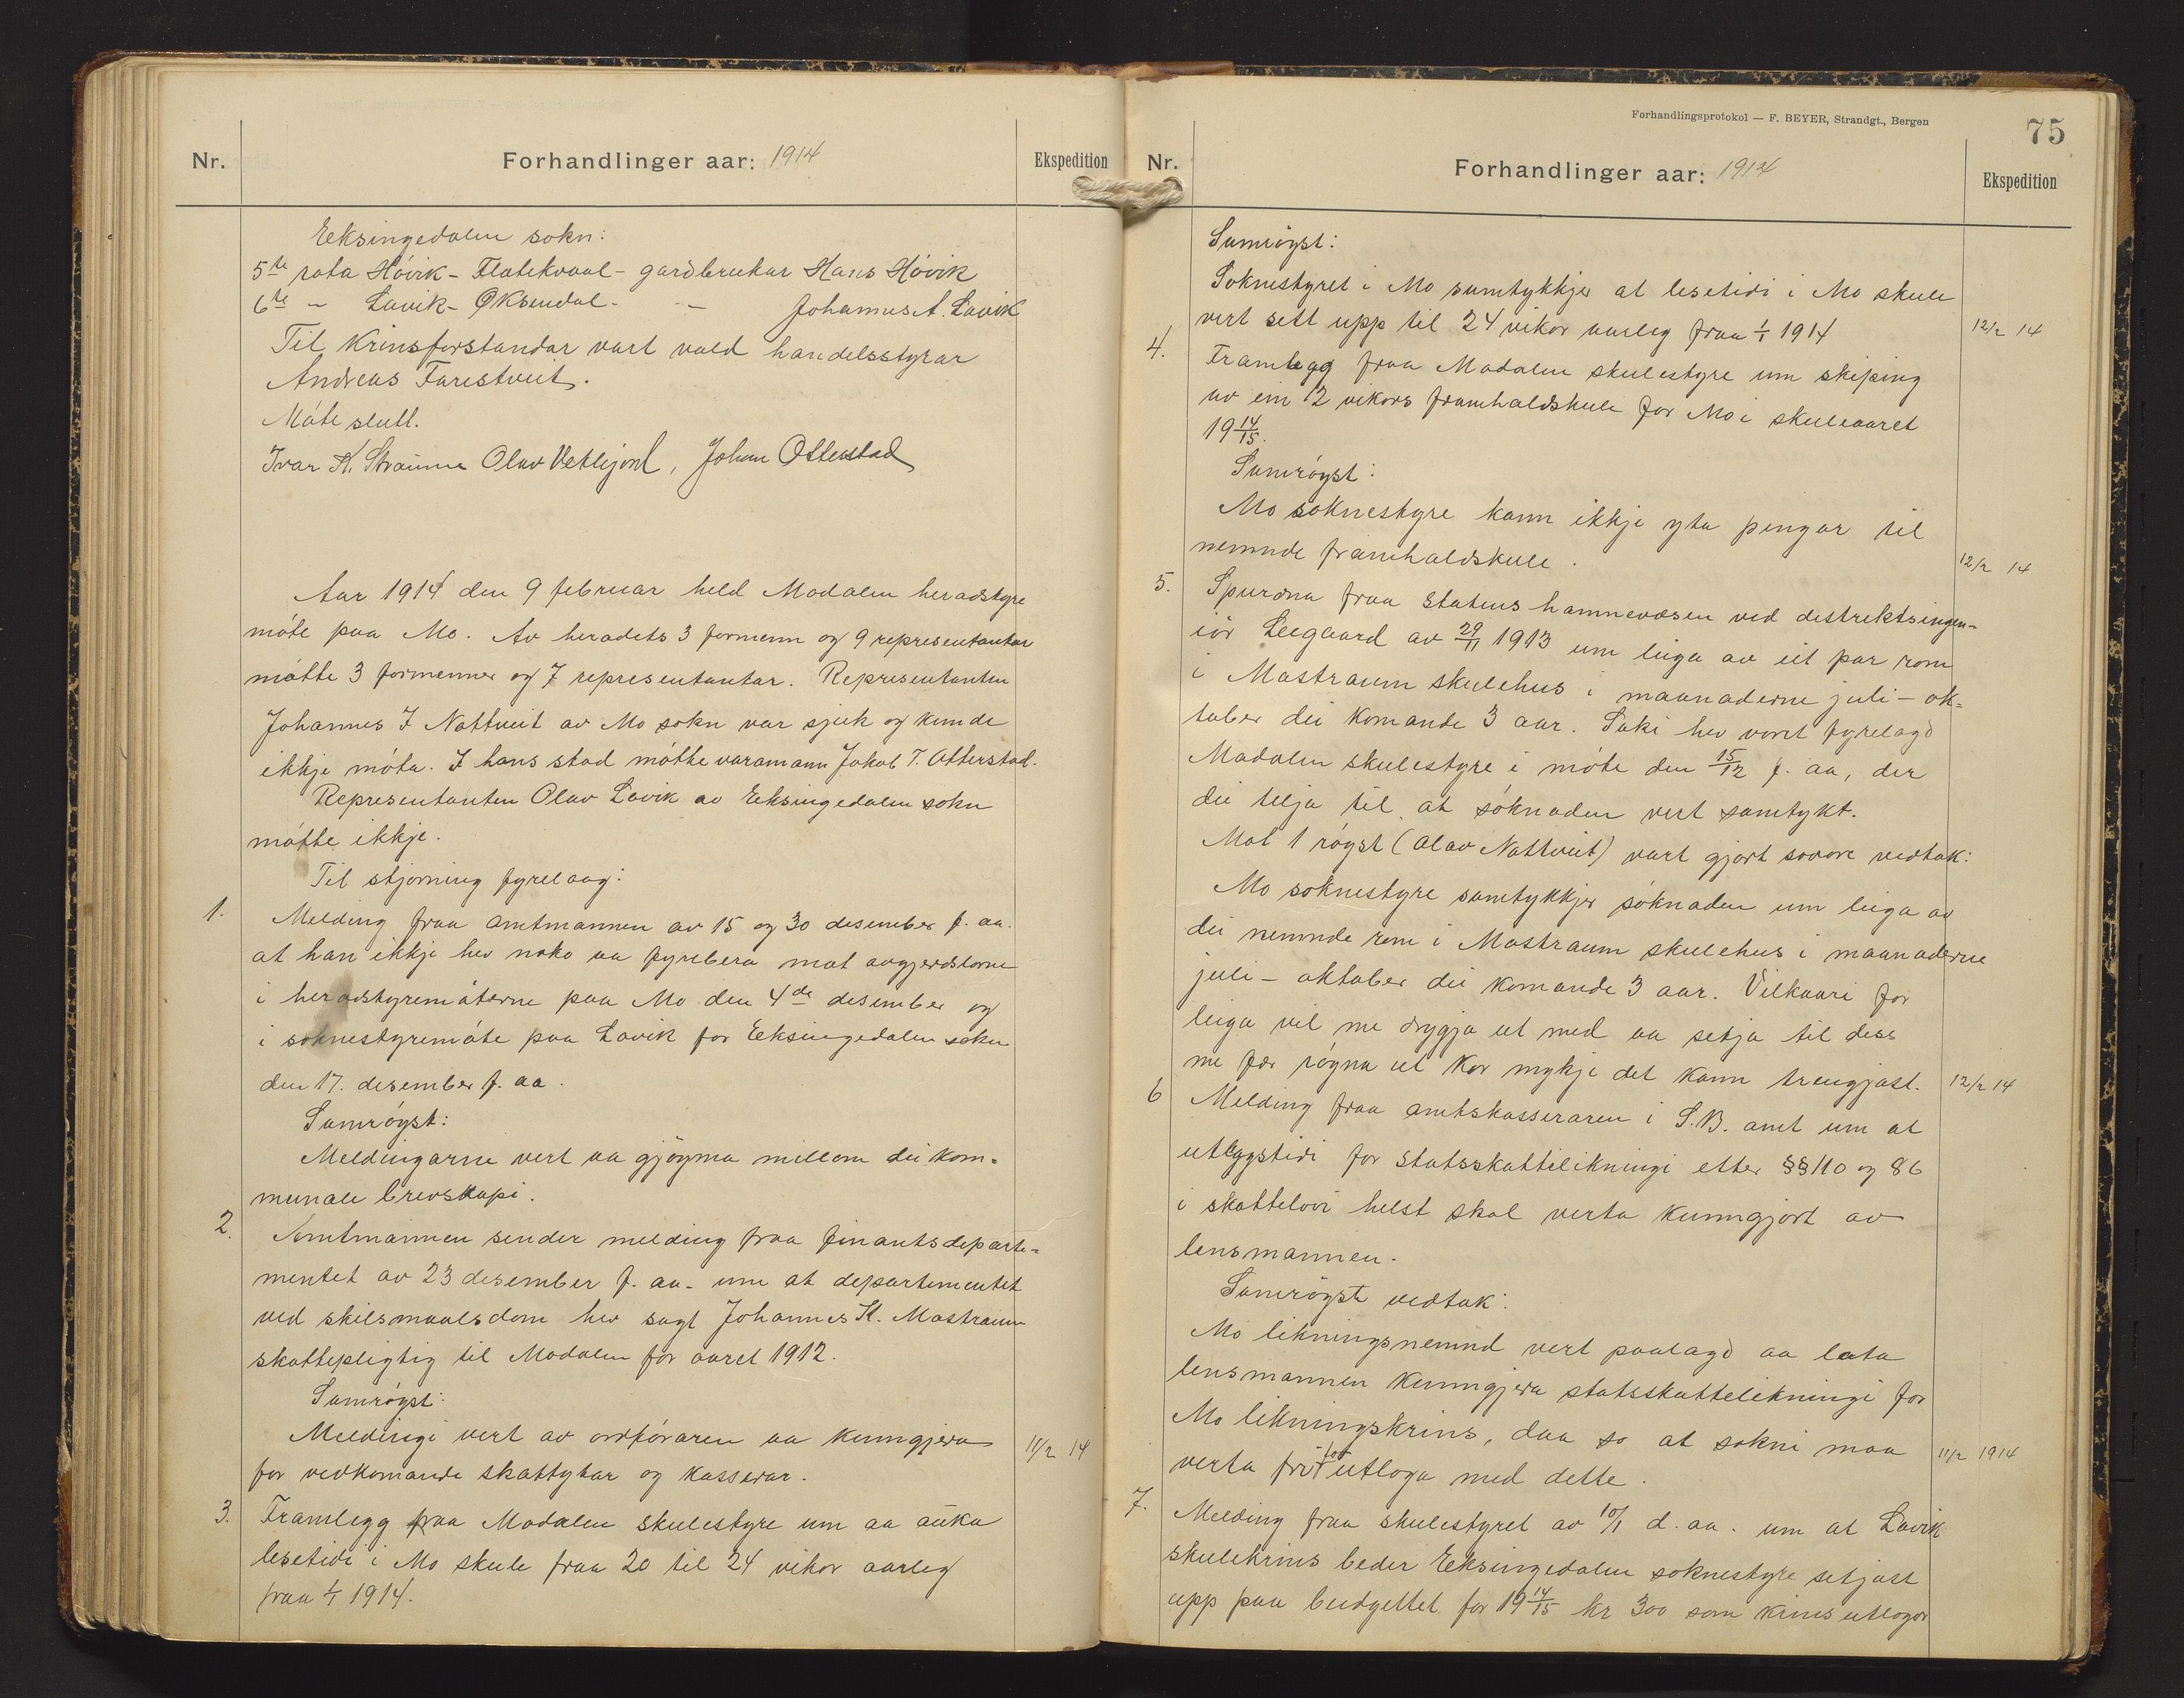 Nr.
Forhandlinger aar: 1914
Ekspedition
Eeksingedalen sokn:
5te rota Hóvik - Flatekvaal - gardbrukar Hans Hóvik
6te - Lavik - Øksendal - - Johannes A. Lavik
Til Krinsforstandar vart vald handelsstyrar
Andreas Farestveit.
Móte slutt.
Ivar K. Straume Olav Vetlejord, Johan Otterstad
Aar 1914 den 9 februar held Modalen heradstyre
móte paa Mo. Av heradets 3 formenn og 9 representantar
mótte 3 formenner og 7 representantar. Representanten
Johannes I Nottveit av Mo sokn var sjuk og kunde
ikkje móta. I hans stad mótte varamann Jakob T. Otterstad.
Representanten Olav Lavik av Eeksingedalen sokn
mótte ikkje.
Til stjorning fyrelaag:
1. Melding fraa amtmannen av 15 og 30 desember f. aa.
at han ikkje hev noko aa fyrebera mot avgjerdslorne
i heradstyremóterne paa Mo den 4de desember og
i soknestyremóte paa Lavik for Eeksingedalen sokn
den 17. desember f. aa.
Samróyst:
Meldingarne vert aa gjöyma millom dei kom-
munale brevskapi.
2. Amtmannen sender melding fraa finantsdeparte-
mentet av 23 desember f. aa. um at departementet
ved skilsmaalsdom hev sagt Johannes K. Mostraum
skattepligtig til Modalen for aaret 1912.
Samróyst:
Meldingi vert av ordfóraren aa kunngjera
for vedkomande skattytar og kasserar.
11/2 14
3. Framlegg fraa Modalen skulestyre um aa auka
lesetidi i Mo skule fraa 20 til 24 vikor aarleg
fraa 1/1 1914.
Forhandlingsprotokol — F. BEYER, Strandgt., Bergen
75
Nr.
Forhandlinger aar: 1914
Ekspedition
Samróyst:
Soknestyret i Mo samtykkjer at lesetidi i Mo skule
vert sett upp til 24 vikor aarleg fraa 1/1 1914
12/2 14
4. Framlegg fraa Modalen skulestyre um skiping
av ein 12 vikors framhaldskule for Mo i skuleaaret
19 14/15.
Samróyst:
Mo soknestyre kann ikkje yta pengar til
nemnde framhaldskule.
12/2 14
5. Spurdna fraa Statens hamnevæsen ved distriktsingen-
iór Leegaard av 29/11 1913 um leiga av eit par rom
i Mostraum skulehus i maanaderne juli - ok-
tober dei komande 3 aar. Saki hev voret fyrelagd
Modalen skulestyre i móte den 15/12 f. aa, der
dei telja til at sóknaden vert samtykt.
Mot 1 róyst (Olav Nottveit) vart gjort sovore vedtak:
Mo soknestyre samtykkjer sóknaden um leiga av
dei nemnde rom i Mostraum skulehus i maanaderne
juli - oktober dei komande 3 aar. Vilkaari for
leiga vil me drygja ut med aa setja til dess
me fær róyna ut kor mykje det kann trengjast.
12/2 14
6 Melding fraa amtskasseraren i S.B. amt um at
utleggstidi for statsskattelikningi etter §§ 110 og 86
i skattelovi helst skal verta kunngjort av
lensmannen.
Samróyste vedtak:
Mo likningsnemnd vert paalagd aa lata
lensmannen kunngjera statsskattelikningi for
Mo likningskrins, daa so at sokni maa
verta fri for utloga med dette.
11/2 1914
7. Melding fraa skulestyret av 10/1 d. aa. um at Lavik
skulekrins beder Eeksingedalen soknestyre setjast
upp paa budgettet for 19 14/15 kr 300 som krinsutlogor